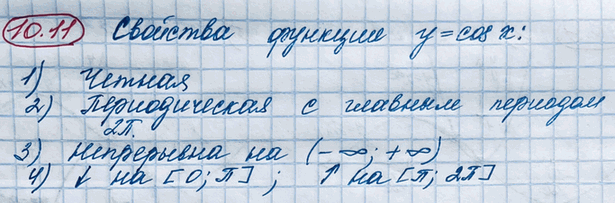 10.11 Свойства функции y=cos x:
1) Четная
2) Периодическая с главным периодом
2π.
3) Непрерывна на (-∞; +∞)
4) ↓ на [0; π] ; ↑ на [π; 2π]